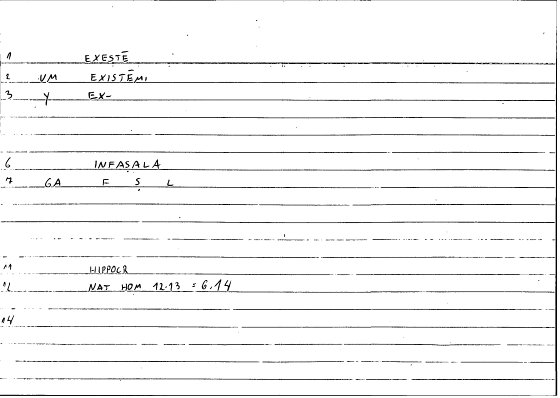 1 EXESTĒ
2 VM EXISTĒMI
3 Y EX-
6 INFAṢALA
7 GA F Ṣ L
11 HIPPOCR
12 NAT HOM 12.13 = 6.14
14